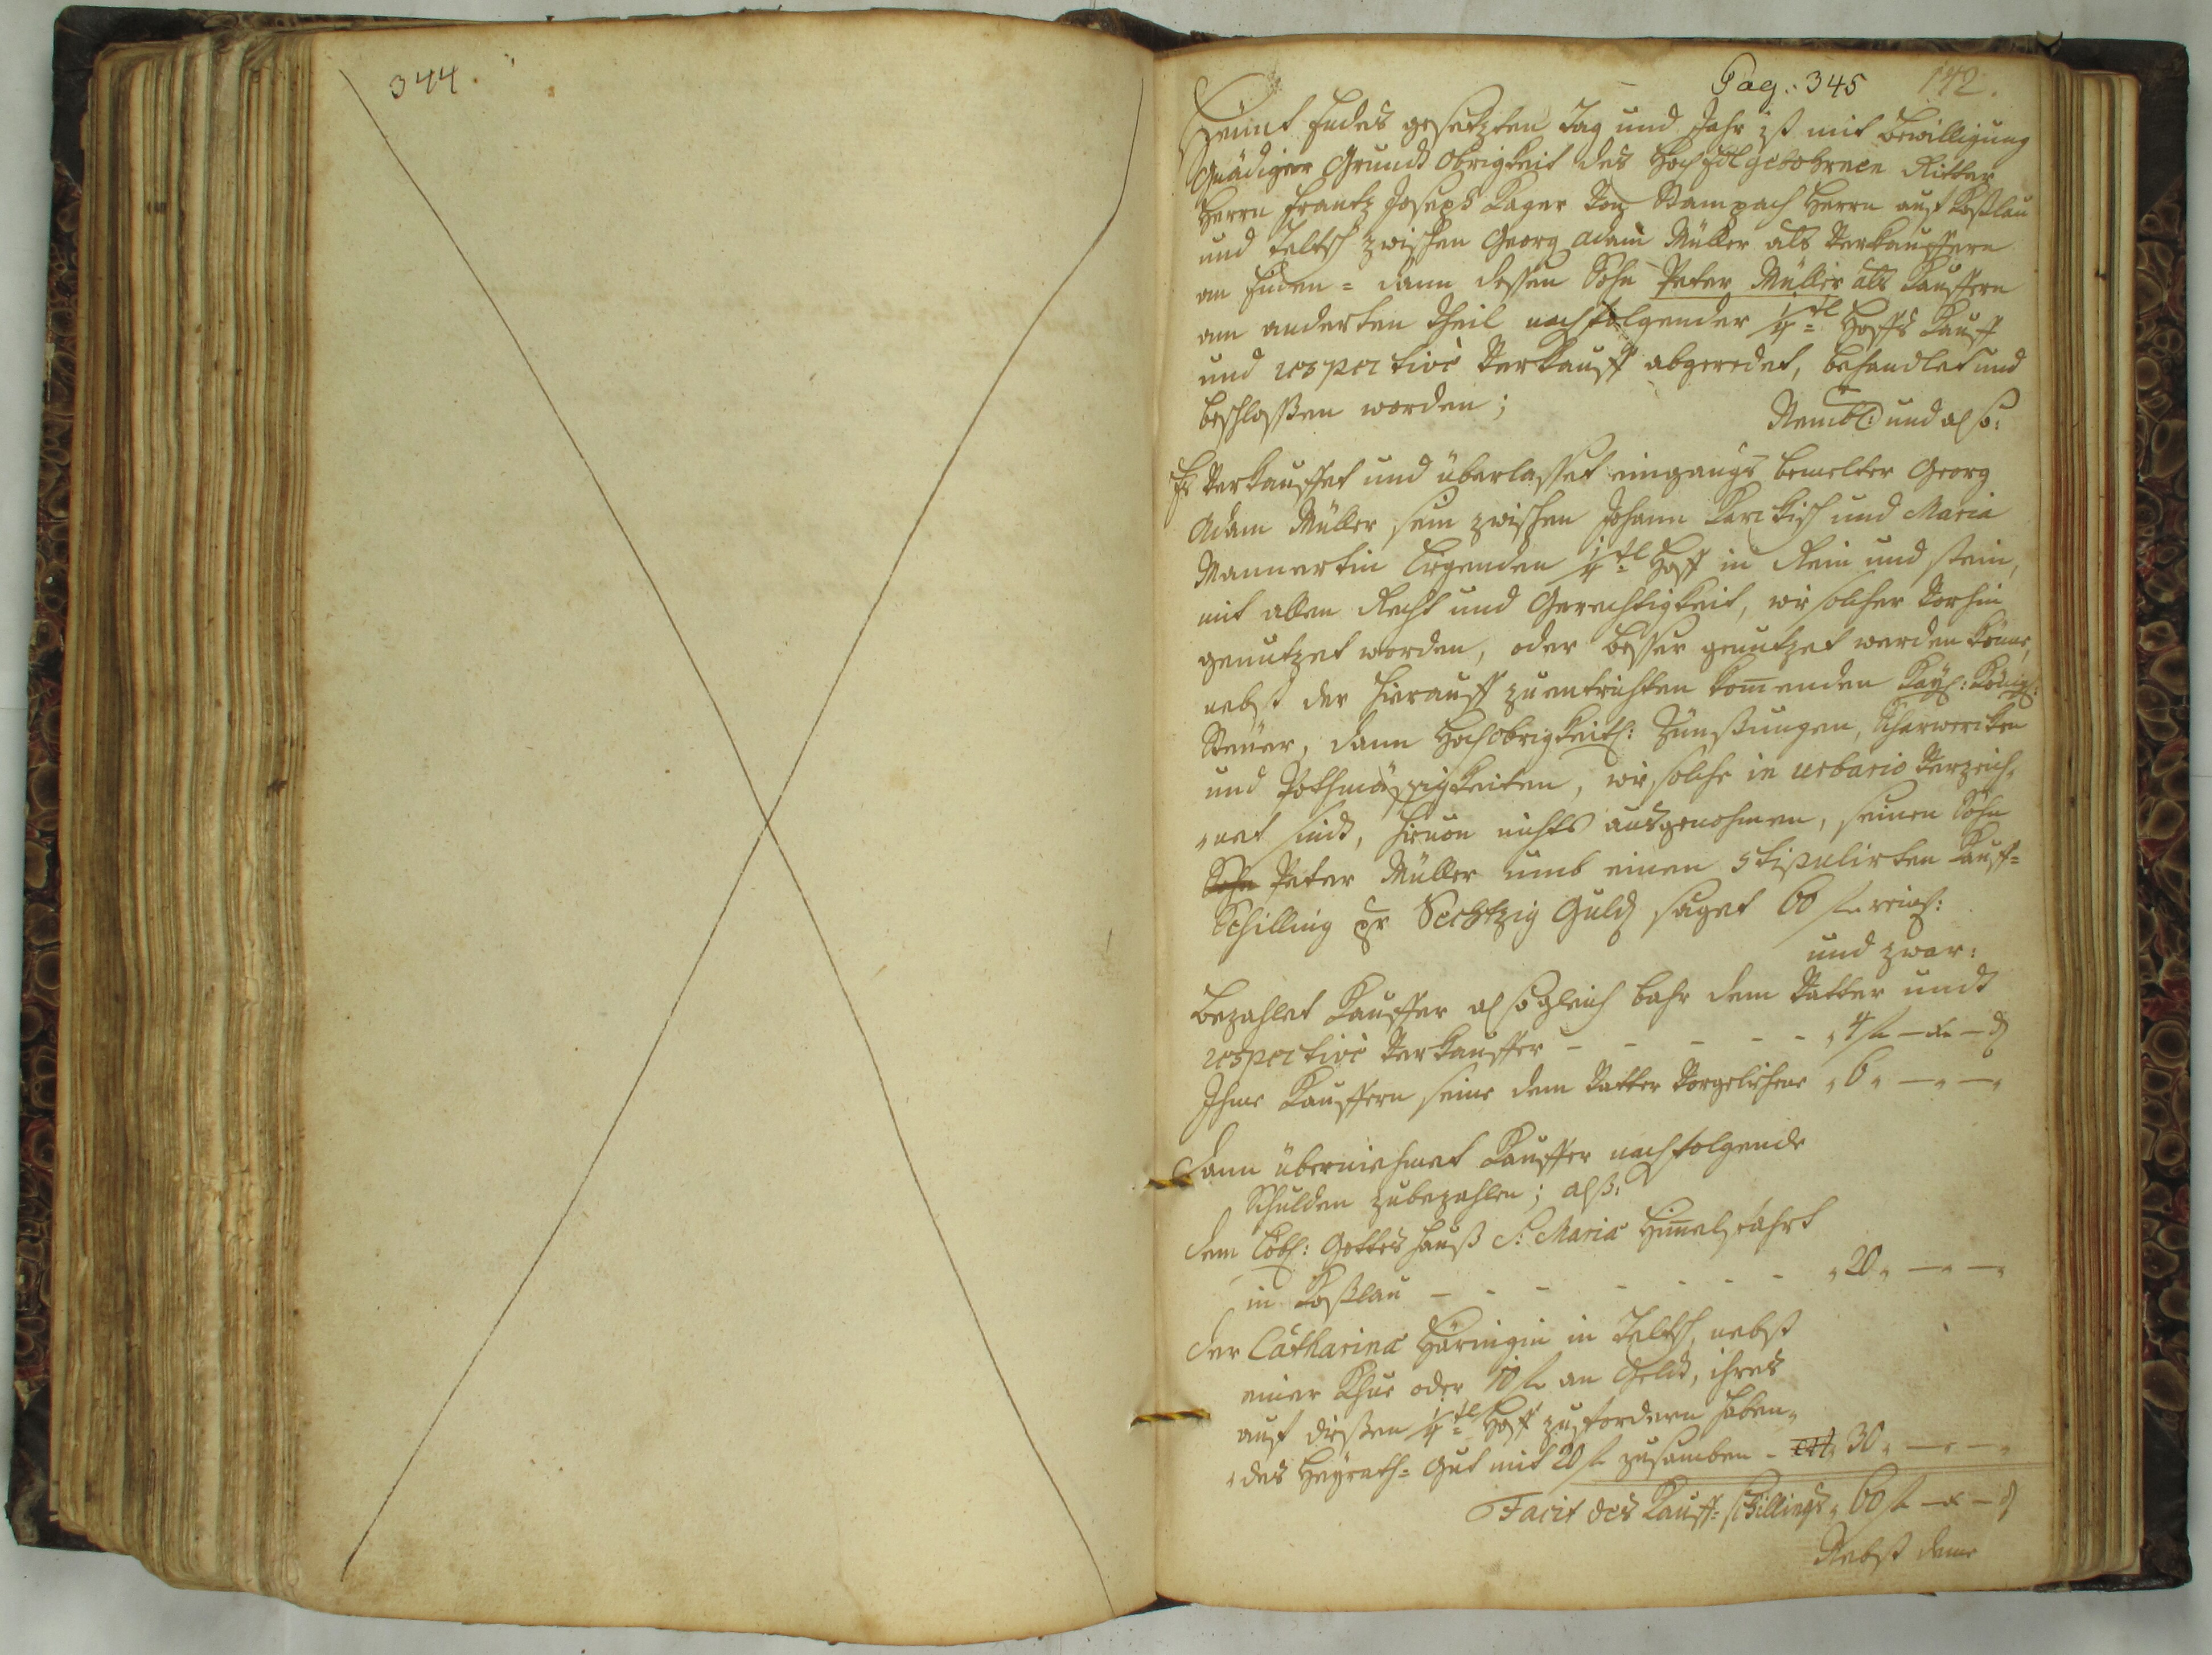 344.
Pag: 345 172.
Heünt Endes gesetzten Tag und Jahr ist mit bewilligung
Gnädiger Grundt Obrigkeit des HochEdlgebohrnen Ritter
Herrn Frantz Joseph Kager Von Stampach Herrn auf Koßlau
und Teltsch zwischen Georg Adam Müller als Verkauffern
an Einen = dann dessen Sohn Peter Müller als Kauffern
am anderten Theil nachfolgender 1/4tl Hoffs Kauff
und respective Verkauff abgeredet, behandlet und
beschlossen worden;
Nembl: und also:
Es Verkauffet und überlasset eingangs bemelter Georg
Adam Müller sein zwischen Johann Karckisch und Maria
Mannertin liegenden 1/4tl Hoff in Rein und stein,
mit allen Recht und Gerechtigkeit, wie solcher Vorhin
genutzet worden, oder besser genutzet werden könne,
nebst der hierauff zuentrichten komenden Kayl: Königl:
Steüer, dann Hochobrigkeitl: Zünßungen, Scharwercken
und Pothmässigkeiten, wie solche in urbario Verzeich-
-net sindt, hievon nichts ausgenohmen, seinen Sohn
Sohn Peter Müller umb einen stipulirten Kauff-
Schilling pr Sechtzig Guld saget 60 f reinl:
und zwar:
Bezahlet Kauffer alsogleich bahr dem Vatter undt
respective Verkauffer - - - - - „ 4 f — x — d
Ihme Kauffern seine dem Vatter Vorgeliehene „ 6 „ — „ — „
Dann übernimmet Kauffer nachfolgende
Schulden zubezahlen; alß:
dem löbl: Gotteshauß S: Maria Himelfahrt
in Koßlau - - - - - - - „ 20 „ — „ — „
der Catharina Häringin in Teltsch, nebst
einer Khue oder 10 f an Geldt, ihres
auf dießen 1/4tl Hoff zufordern haben-
-des Heyrath-Gut mit 20 f zusamben - „ 30 „ — „ — „
Facit des Kauff-schillings „ 60 f — x — d
Nebst deme